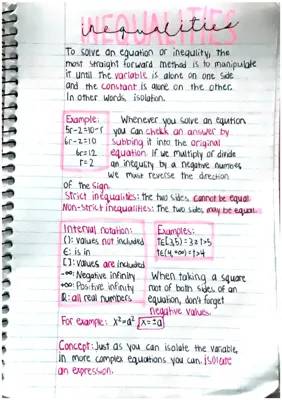 INEQUALITIES
inequalities
To solve an equation or inequlity, the
most straight forward method is to manipulate
it until the variable is alone on one side
and the constant is alone on the other.
In other words, isolation.
Example:
5r-2=10-r
6r-2=10
6r=12
r=2
Whenever you solve an eqution
you can chekk an answer by
subbing it into the original
equation. If we multiply or divide
an inequality by a negative number,
we must reverse the direction
of the sign.
Strict inequalities: the two sides cannot be equal.
Non-strict inequalities: the two sides may be equal.
Interval notation:
(): values not included
∈: is in
[]: values are included
-∞: Negative infinity
+∞: Positive infinity
ℝ: all real numbers
Examples:
When taking a square
root of both sides of an
equation, don't forget
negative values.
For example: x²=a² x=±a
Concept: Just as you can isolate the variable,
in more complex equations you can isolate
an expression.